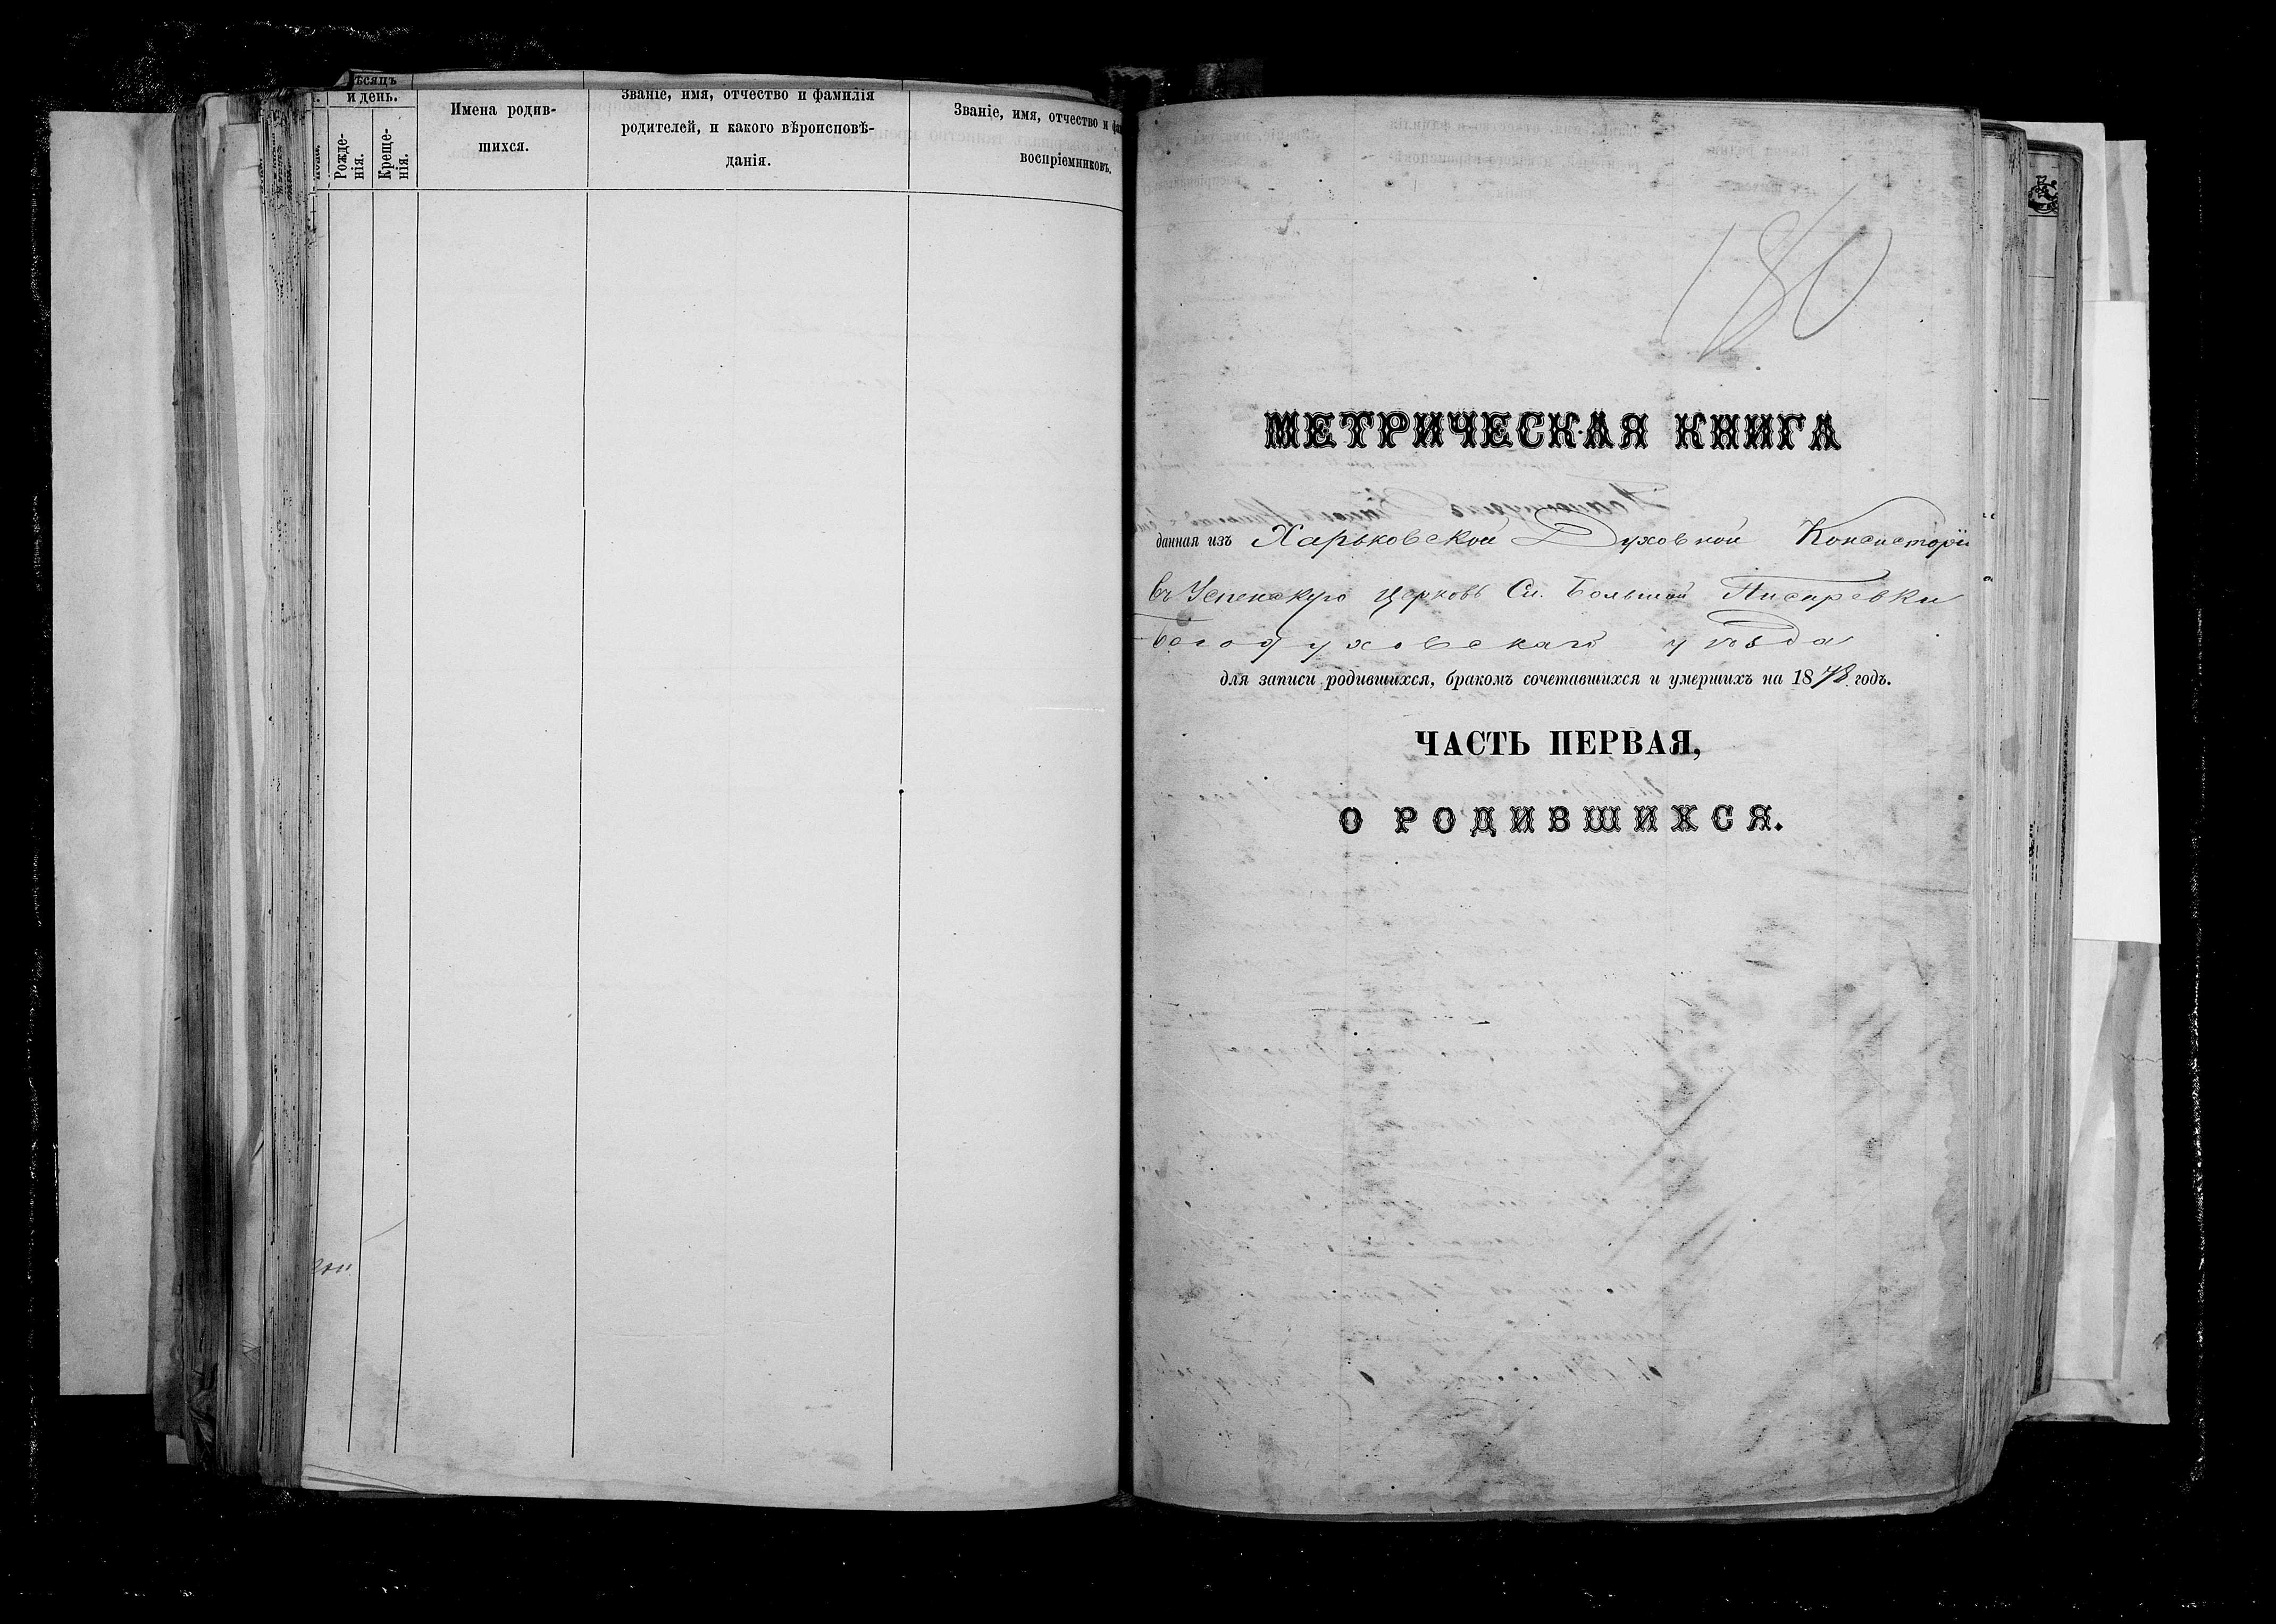 ѣсяцъ
и день.
Рожде-
нія.
Креще-
нія.
Имена родив-
шихся.
Званіе, имя, отчество и фамилія
родителей, и какого вѣроисповѣ-
данія.
Званіе, имя, отчество и
воспріемниковъ.
180
МЕТРИЧЕСКАЯ КНИГА
данная изъ Харьковской Духовной Консисторіи
въ Успенскую церковь Сл. Большой Писаревки
Богодуховскаго уѣзда
для записи родившихся, бракомъ сочетавшихся и умершихъ на 1878 годъ.
ЧАСТЬ ПЕРВАЯ,
О РОДИВШИХСЯ.